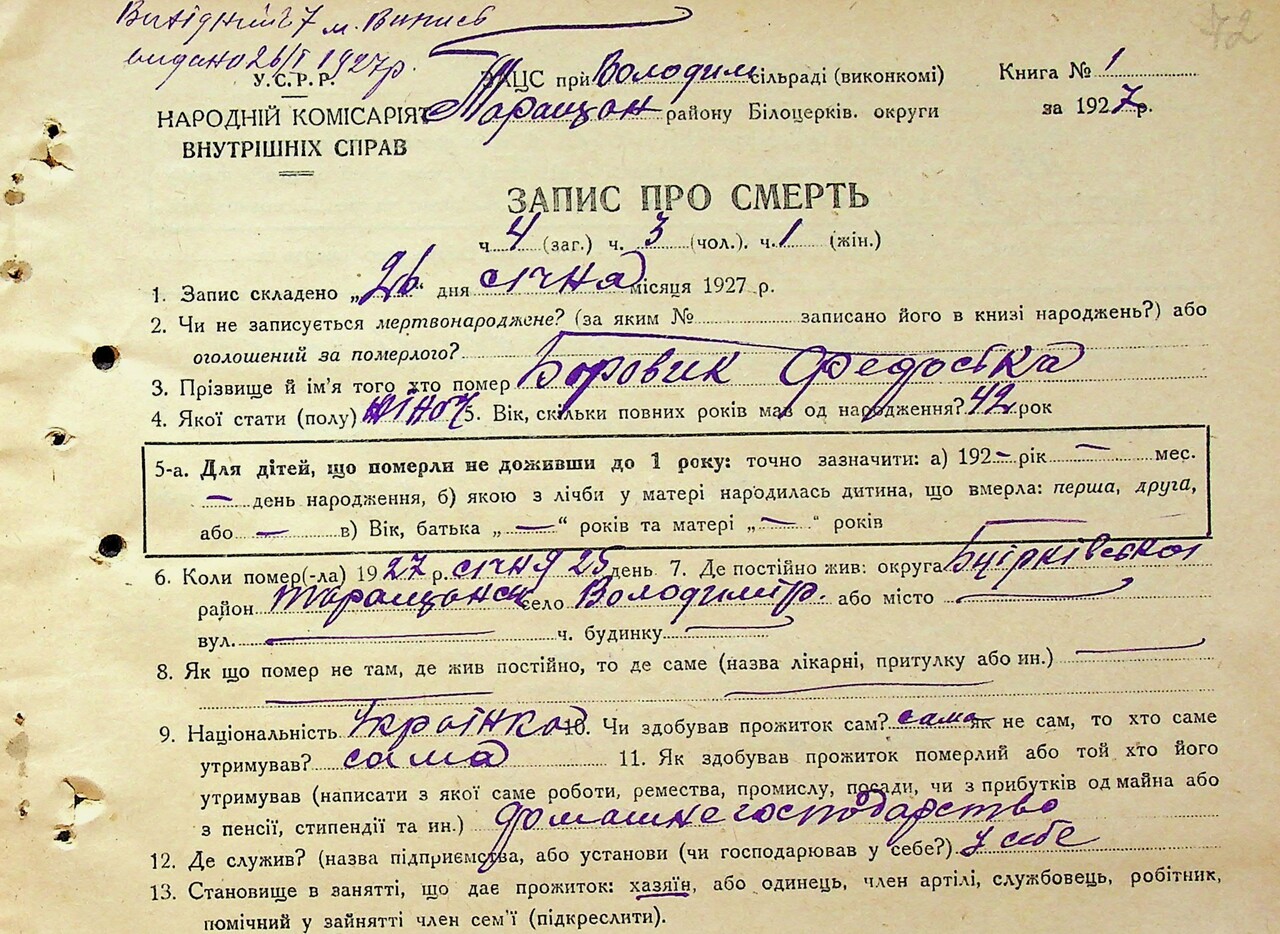 Вихідний 7 м. Випись
видано 26/I 1927р.
72
У.С.Р.Р.
НАРОДНІЙ КОМІСАРІЯТ
ВНУТРІШНІХ СПРАВ
ЗАЦС при Володим сільраді (виконкомі)
Таращан району Білоцерків. округи
Книга № 1
за 1927 р.
ЗАПИС ПРО СМЕРТЬ
ч. 4 (заг.) ч. 3 (чол.). ч. 1 (жін.)
1. Запис складено „26“ дня січня місяця 1927 р.
2. Чи не записується мертвонароджене? (за яким № записано його в книзі народжень?) або
оголошений за померлого?
3. Прізвище й ім'я того хто помер Боровик Федоська
4. Якої статі (полу) жіноч 5. Вік, скільки повних років мав од народження? 42 рок
5-а. Для дітей, що померли не доживши до 1 року: точно зазначити: а) 192– рік – мес.
– день народження, б) якою з лічби у матері народилась дитина, що вмерла: перша, друга,
або – в) Вік, батька „–“ років та матері „–“ років
6. Коли помер(-ла) 1927 р. січня 25 день 7. Де постійно жив: округа
район Таращанск село Володимір. або місто –
вул. – ч. будинку –
8. Як що помер не там, де жив постійно, то де саме (назва лікарні, притулку або ин.) –
9. Національність Українка 10. Чи здобував прожиток сам? сама як не сам, то хто саме
утримував? сама 11. Як здобував прожиток померлий або той хто його
утримував (написати з якої саме роботи, ремества, промислу, посади, чи з прибутків од майна або
з пенсії, стипендії та ин.) домашнє господарство
12. Де служив? (назва підприємства, або установи (чи господарював у себе?) у себе
13. Становище в занятті, що дає прожиток: хазяїн, або одинець, член артілі, службовець, робітник,
помічний у зайнятті член сем'ї (підкреслити).